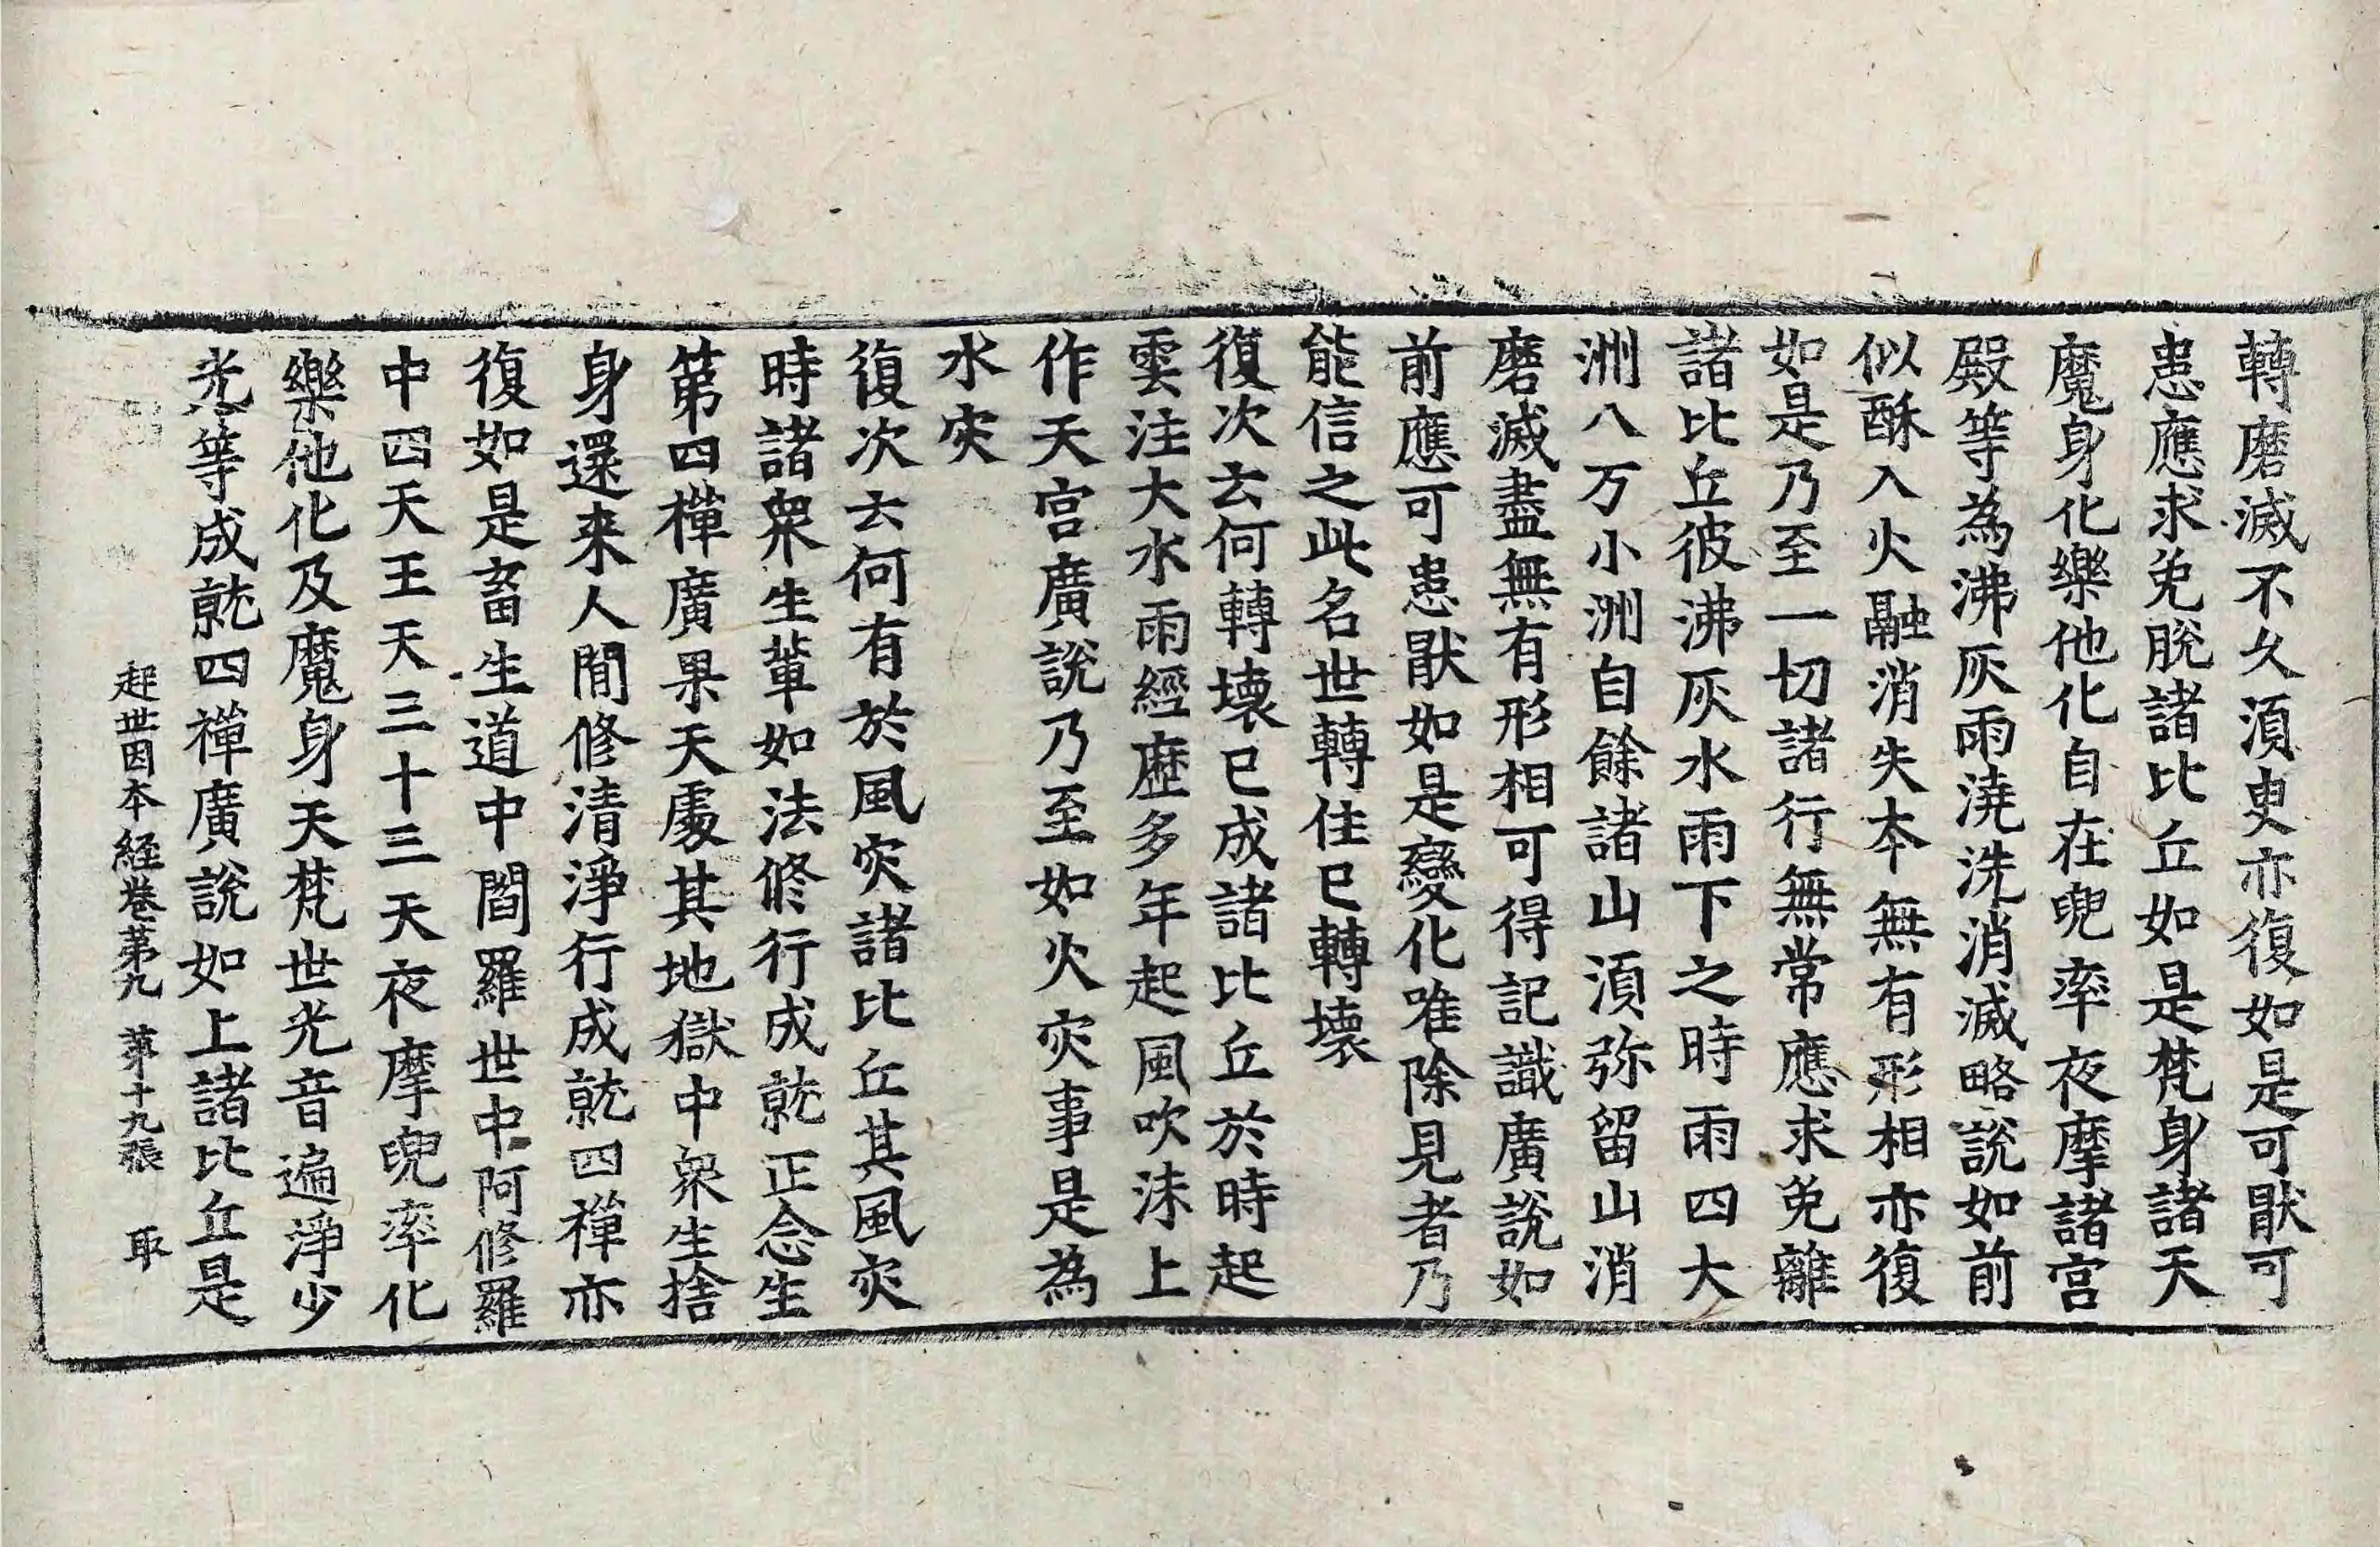 轉磨滅不久須臾亦復如是可猒可
患應求免脫諸比丘如是梵身諸天
魔身化樂他化自在兜率夜摩諸宮
殿等為沸灰雨澆洗消滅略說如前
似酥入火融消失本無有形相亦復
如是乃至一切諸行無常應求免離
諸比丘彼沸灰水雨下之時雨四大
洲八万小洲自餘諸山須弥留山消
磨滅盡無有形相可得記識廣說如
前應可患猒如是變化唯除見者乃
能信之此名世轉住已轉壞
復次云何轉壞已成諸比丘於時起
雲注大水雨經歷多年起風吹沫上
作天宮廣說乃至如火灾事是為
水灾
復次云何有於風灾諸比丘其風灾
時諸衆生輩如法修行成就正念生
第四禪廣果天處其地獄中衆生捨
身還来人閒修清淨行成就四禪亦
復如是畜生道中閻羅世中阿修羅
中四天王天三十三天夜摩兜率化
樂他化及魔身天梵世光音遍淨少
光等成就四禪廣說如上諸比丘是
起世因本経卷第九 第十九張 取